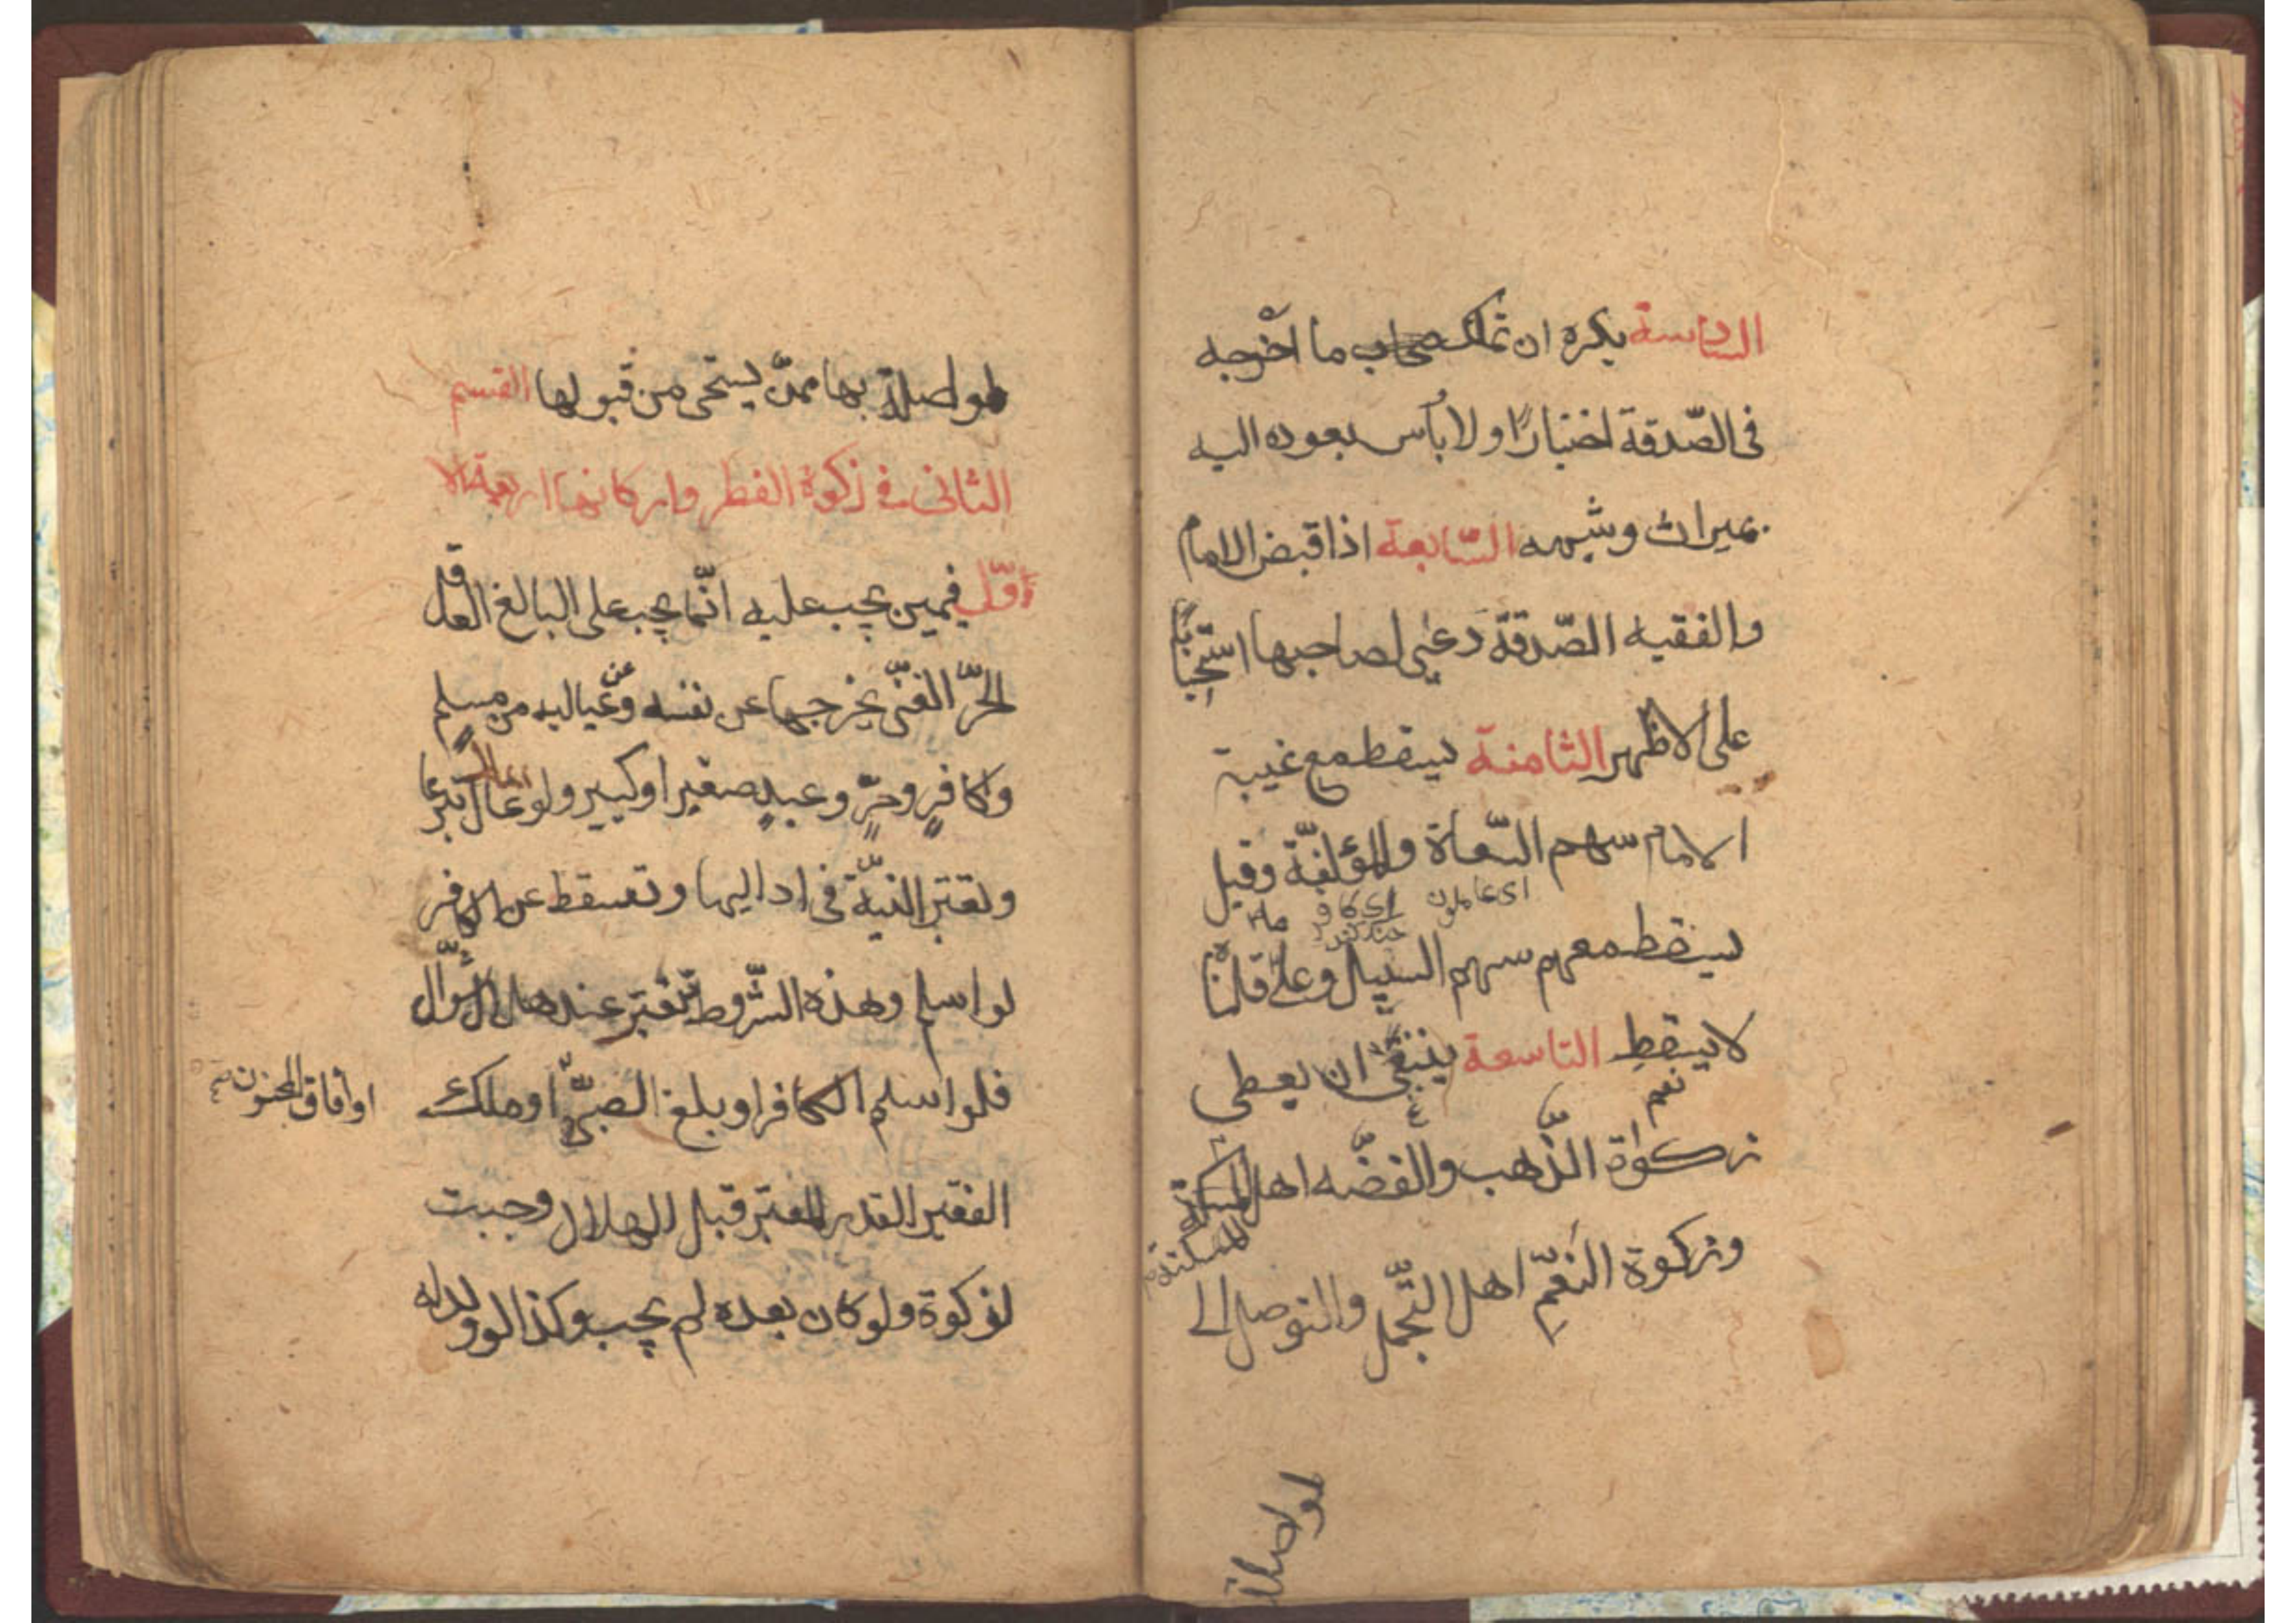 السادسة يكره ان تملك ما اخرجه
فى الصّدقة اختيارًا ولا بأس بعوده اليه
بميراث وشبهه السّابعة اذا قبض الامام
والفقيه الصّدقة دعى لصاحبها استحبابًا
على الاظهر الثامنة يسقط مع غيبة
الامام سهم السّعاة والمؤلفة وقيل
اى عاملون اى كافر
يسقط معهم سهم السبيل وعلى ما قلناه
لا يسقط التاسعة ينبغى ان يعطى
نعم
زكوة الذّهب والفضّه اهل المسكنة
المسكنة
وزكوة النّعم اهل التّجمل والتوصل الى
لمواصلة بها ممّن يستحى من قبولها القسم
الثانى فى زكوة الفطر واركانها اربعة الا
اوّل فيمن يجب عليه انّما يجب على البالغ العاقل
الحرّ الغنىّ يخرجها عن نفسه وعن عياله من مسلم
وكافرٍ وحرٍّ وعبدٍ صغير او كبير ولو عال تبرعا
وتعتبر النيّة فى اداليها وتسقط عن الكافر
لو اسلم وهذه الشّروط تعتبر عند هلال شوّال
فلو اسلم الكافر او بلغ الصبىّ او ملك
او افاق المجنون
الفقير القدر المعتبر قبل الهلال وجبت
لزكوة ولو كان بعده لم يجب وكذا لو ولد له